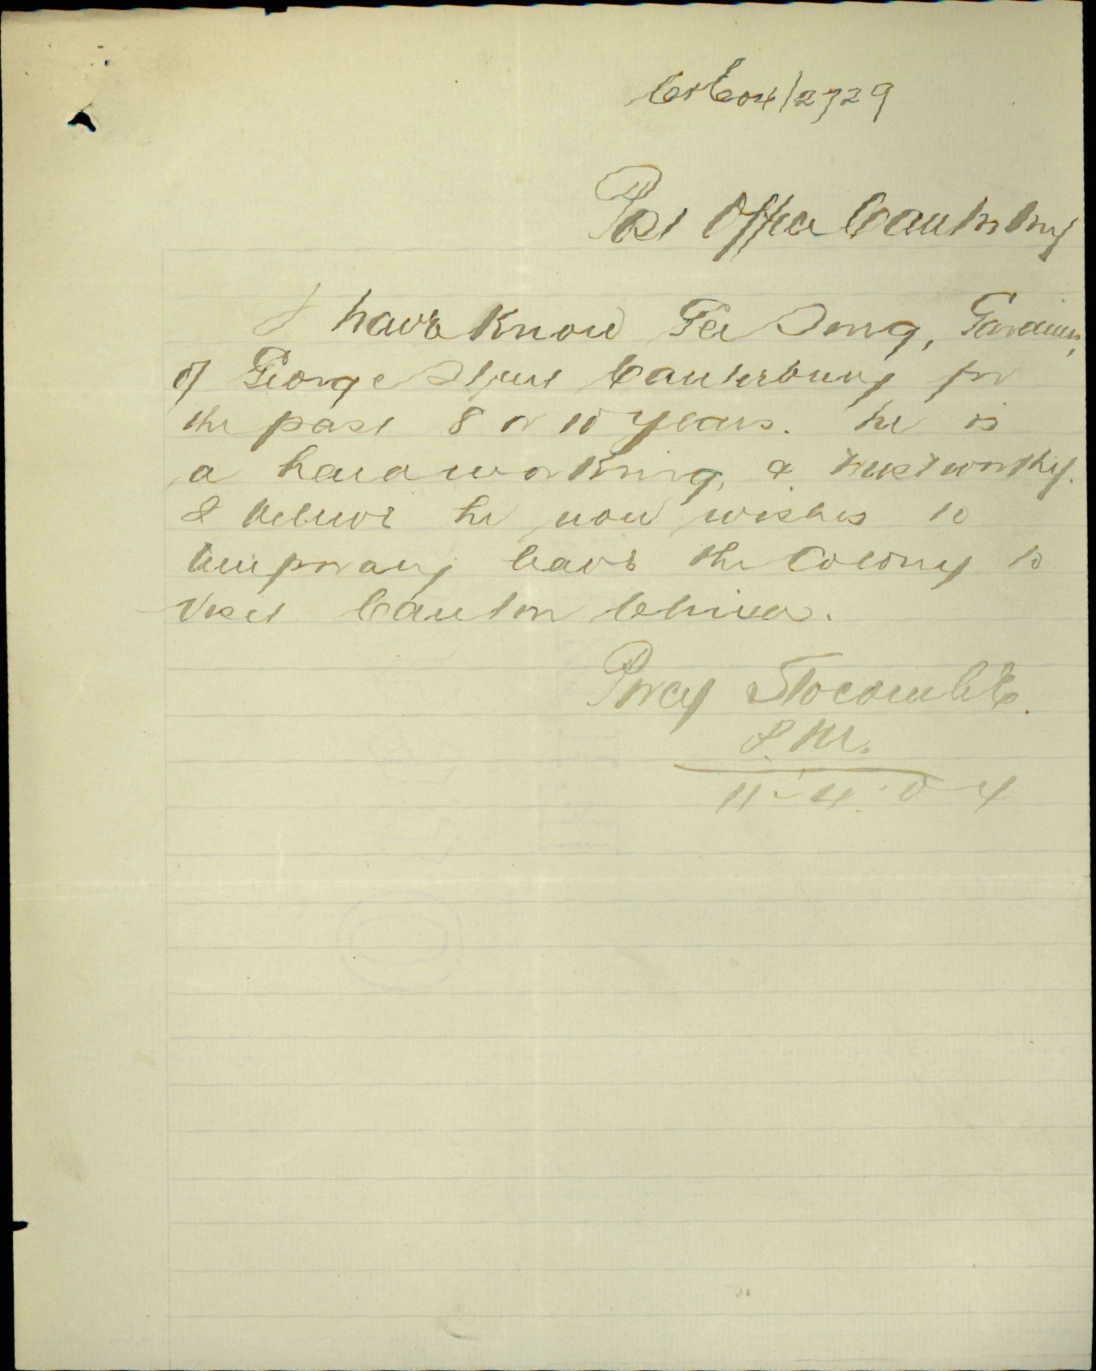 C&E 04/2729
Post Office Canterbury
I have know Fer Song, Gardener,
of George Street Canterbury for
the past 8 or 10 years. he is
a hard working, & trustworthy.
I believe he now wishes to
temporary leave the Colony to
visit Canton China.
Percy Slocombe
P.M.
11-4.04